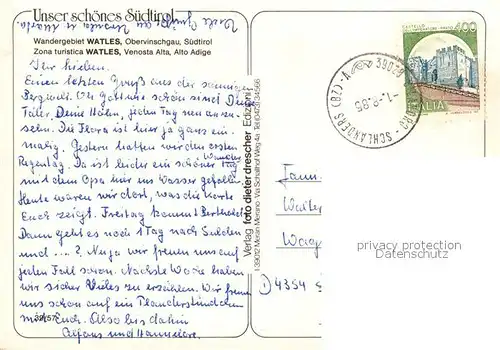 Unser schönes Südtirol
Wandergebiet WATLES, Obervinschgau, Südtirol
Zona turistica WATLES, Venosta Alta, Alto Adige
Ihr Lieben.
Einen letzten Gruß aus der sonnigen
Bergwelt. Oh Gott wie schön sind Deine
Täler, Deine Höhn, jeden Tag neu anzu-
sehn. Die Flora ist hier ja ganz ein-
malig. Gestern hatten wir den ersten
Regentag. Da ist leider ein schöner Tag
mit dem Opa hier ins Wasser gefallen
Heute waren wir dort, was die Karte
Euch zeigt. Freitag kommt Berthold
Dann geht es noch 1 Tag nach Sulden
und ... ? Naja wir freuen uns auf
jeden Fall schon. Nächste Woche haben
wir sicher Vieles zu erzählen. Wir freuen
uns schon auf ein Plauderstündchen
mit Euch. Also bis dahin
Alfons und Hannelore.
Verlag foto dieter drescher Edizioni
I-39012 Meran Merano · Via Schaffhof Weg 4a · Tel.
400
ITALIA
39028
SCHLANDERS (BZ) - A
Fam.
Walter
Wag
D 4354
privacy protection
Datenschutz